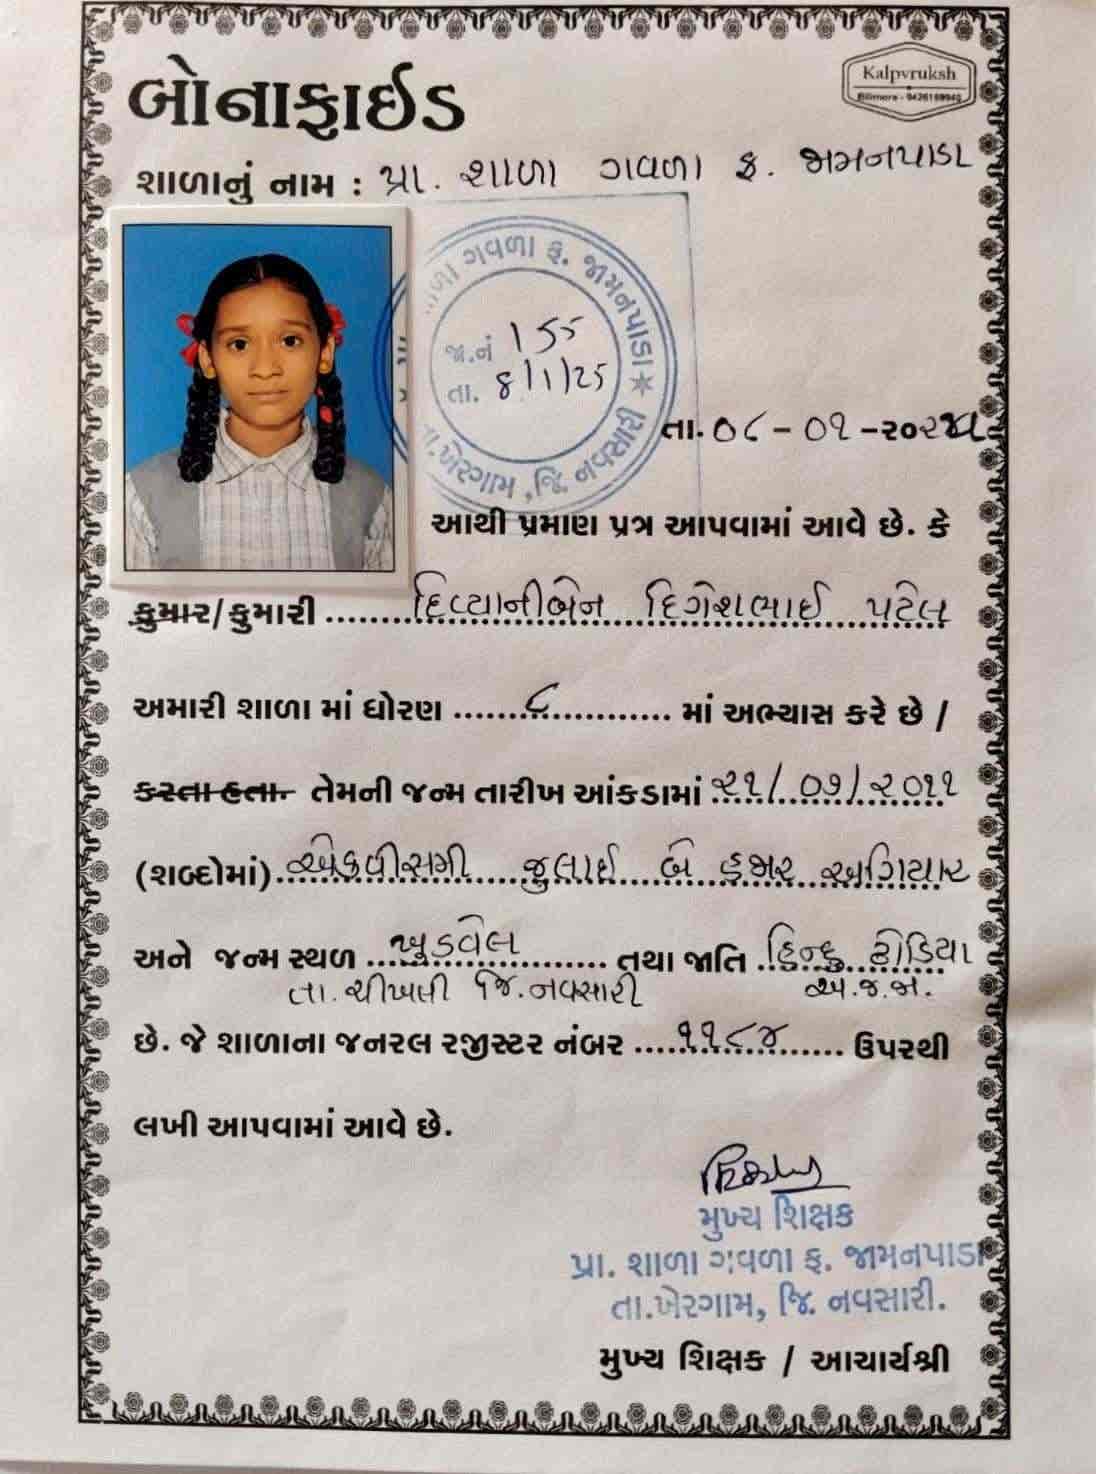 Kalpvruksh
Bilimora - 9426169940
બોનાફાઈડ
શાળાનું નામ : પ્રા. શાળા ગવળા ફ. જામનપાડા
ળા ગવળા ફ. જામનપાડા
જા.નં 155
તા. 8/1/25
તા.ખેરગામ, જિ. નવસારી
તા. ૦૮-૦૧-૨૦૨૫
આથી પ્રમાણ પત્ર આપવામાં આવે છે. કે
કુમાર/કુમારી દિવ્યાનીબેન દિગેશભાઈ પટેલ
અમારી શાળા માં ધોરણ ૮ માં અભ્યાસ કરે છે /
કરતા હતા. તેમની જન્મ તારીખ આંકડામાં ૨૧/૦૭/૨૦૧૧
(શબ્દોમાં) એકવીસમી જુલાઈ બે હજાર અગિયાર
અને જન્મ સ્થળ ખુડવેલ તથા જાતિ હિન્દુ ઢોડિયા
તા. ચીખલી જિ. નવસારી અ.જ.જા.
છે. જે શાળાના જનરલ રજીસ્ટર નંબર ૧૧૮૪ ઉપરથી
લખી આપવામાં આવે છે.
મુખ્ય શિક્ષક
પ્રા. શાળા ગવળા ફ. જામનપાડા
તા.ખેરગામ, જિ. નવસારી.
મુખ્ય શિક્ષક / આચાર્યશ્રી